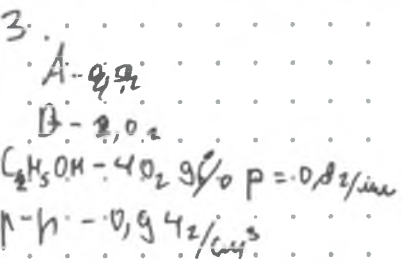 3.
А -
D - 2,0 г
C₂H₅OH - 40 г 9% ρ = 0,8 г/мл
р-р - 0,94 г/см³